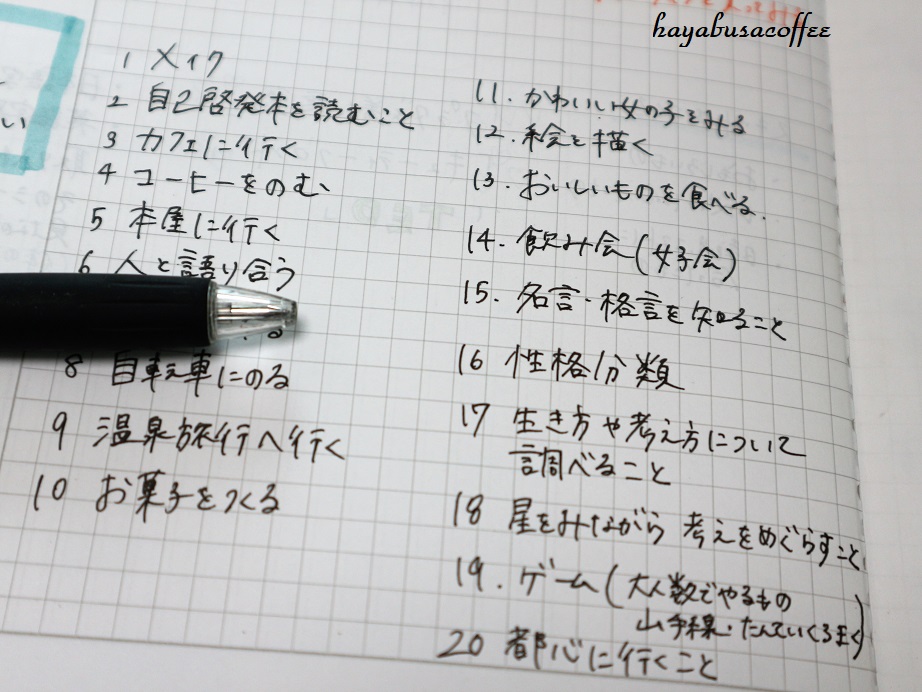 hayabusacoffee
い
1 メイク
2 自己啓発本を読むこと
3 カフェに行く
4 コーヒーをのむ
5 本屋に行く
6 人と語り合う
る
8 自転車にのる
9 温泉旅行へ行く
10 お菓子をつくる
11. かわいい女の子をみる
12. 絵を描く
13. おいしいものを食べる.
14. 飲み会(女子会)
15. 名言・格言を知ること
16 性格分類
17 生き方や考え方について
調べること
18 星をみながら 考えをめぐらすこと
19. ゲーム(大人数でやるもの
山手線・たんていくろまく)
20 都心に行くこと